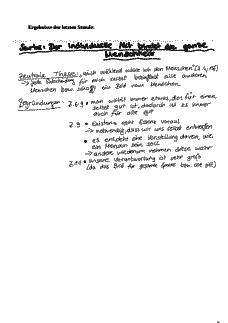 Ergebnisse der letzten Stunde:
Sartre: Der individuelle Akt bindet die ganze
Menschheit
Zentrale These: „mich wählend wähle ich den Menschen" (Z.
→ jede Entscheidung für mich selbst beeinflusst alle anderen
Menschen bzw. schafft ein Bild vom Menschen
Begründungen: Z.6-9 • man wählt immer etwas, das für einen
selbst gut ist, dadurch ist es immer
auch für alle gut
Z.9 • Existenz geht Essenz voraus
→ notwendig, dass wir uns selbst entwerfen
• es entsteht eine Vorstellung davon, wie
ein Mensch sein soll
→ andere wiederum nehmen diese wahr
• unsere Verantwortung ist sehr groß
(da das Bild für gesamte Epoche bzw. alle gilt)